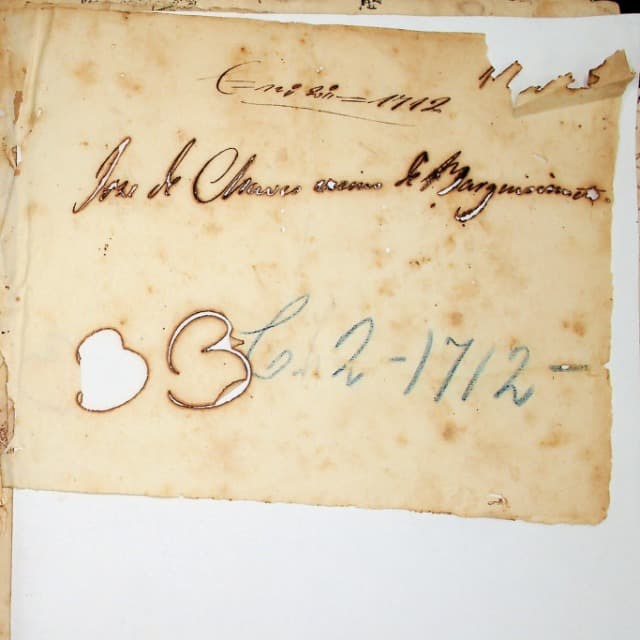 1712
Jose de Chaves vecino de Barquisimeto.
3 C. 2-1712-